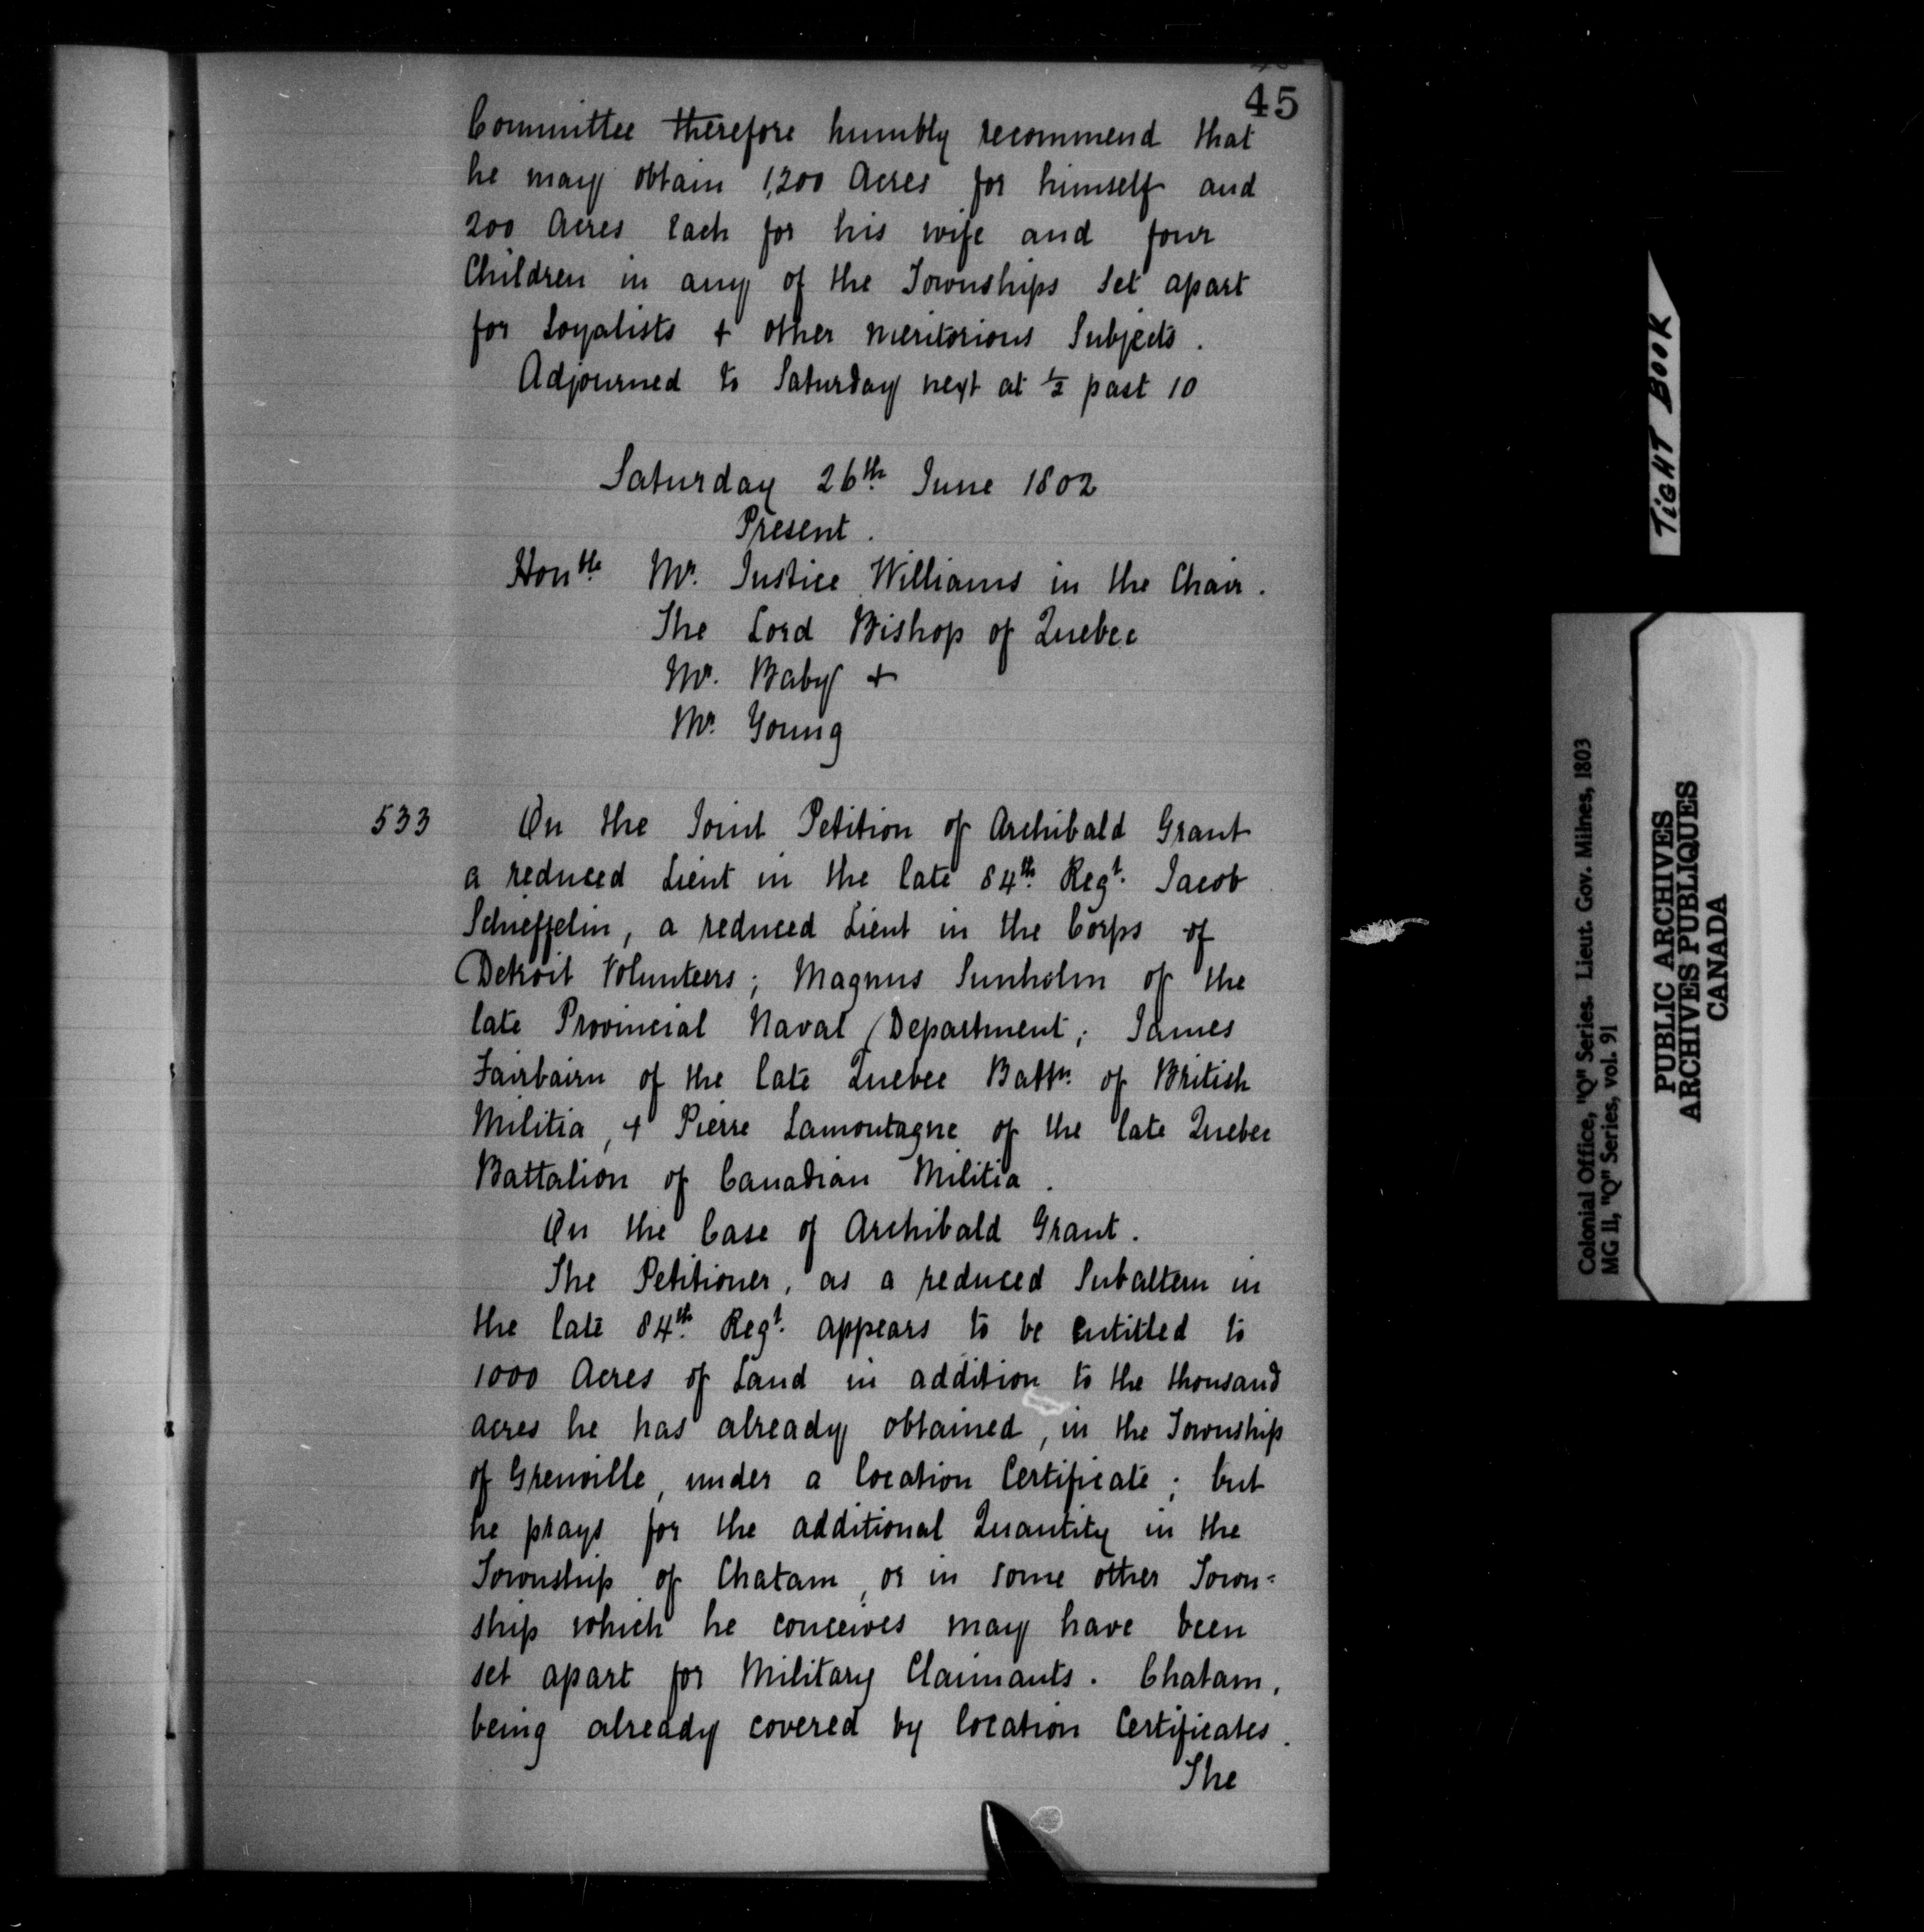 45
Committee therefore humbly recommend that
he may obtain 1,200 Acres for himself and
200 Acres Each for his wife and four
Children in any of the Townships Set apart
for Loyalists + other meritorious Subjects.
Adjourned to Saturday next at ½ past 10
Saturday 26th June 1802
Present.
Honble Mr. Justice Williams in the Chair.
The Lord Bishop of Quebec
Mr. Baby +
Mr. Young
533 On the Joint Petition of Archibald Grant
a reduced Lieut in the late 84th Regt. Jacob
Schieffelin, a reduced Lieut in the Corps of
Detroit Volunteers; Magnus Sunholm of the
late Provincial Naval Department; James
Fairbairn of the late Quebec Battn. of British
Militia, + Pierre Lamontagne of the late Quebec
Battalion of Canadian Militia.
On the Case of Archibald Grant.
The Petitioner, as a reduced Subaltern in
the late 84th Regt. appears to be Entitled to
1000 Acres of Land in addition to the thousand
acres he has already obtained, in the Township
of Grenville, under a location Certificate; but
he prays for the additional Quantity in the
Township of Chatam, or in some other Town=
ship which he conceives may have been
set apart for Military Claimants. Chatam,
being already covered by location Certificates.
The
TIGHT BOOK
Colonial Office, "Q" Series. Lieut. Gov. Milnes, 1803
MG 11, "Q" Series, vol. 91
PUBLIC ARCHIVES
ARCHIVES PUBLIQUES
CANADA